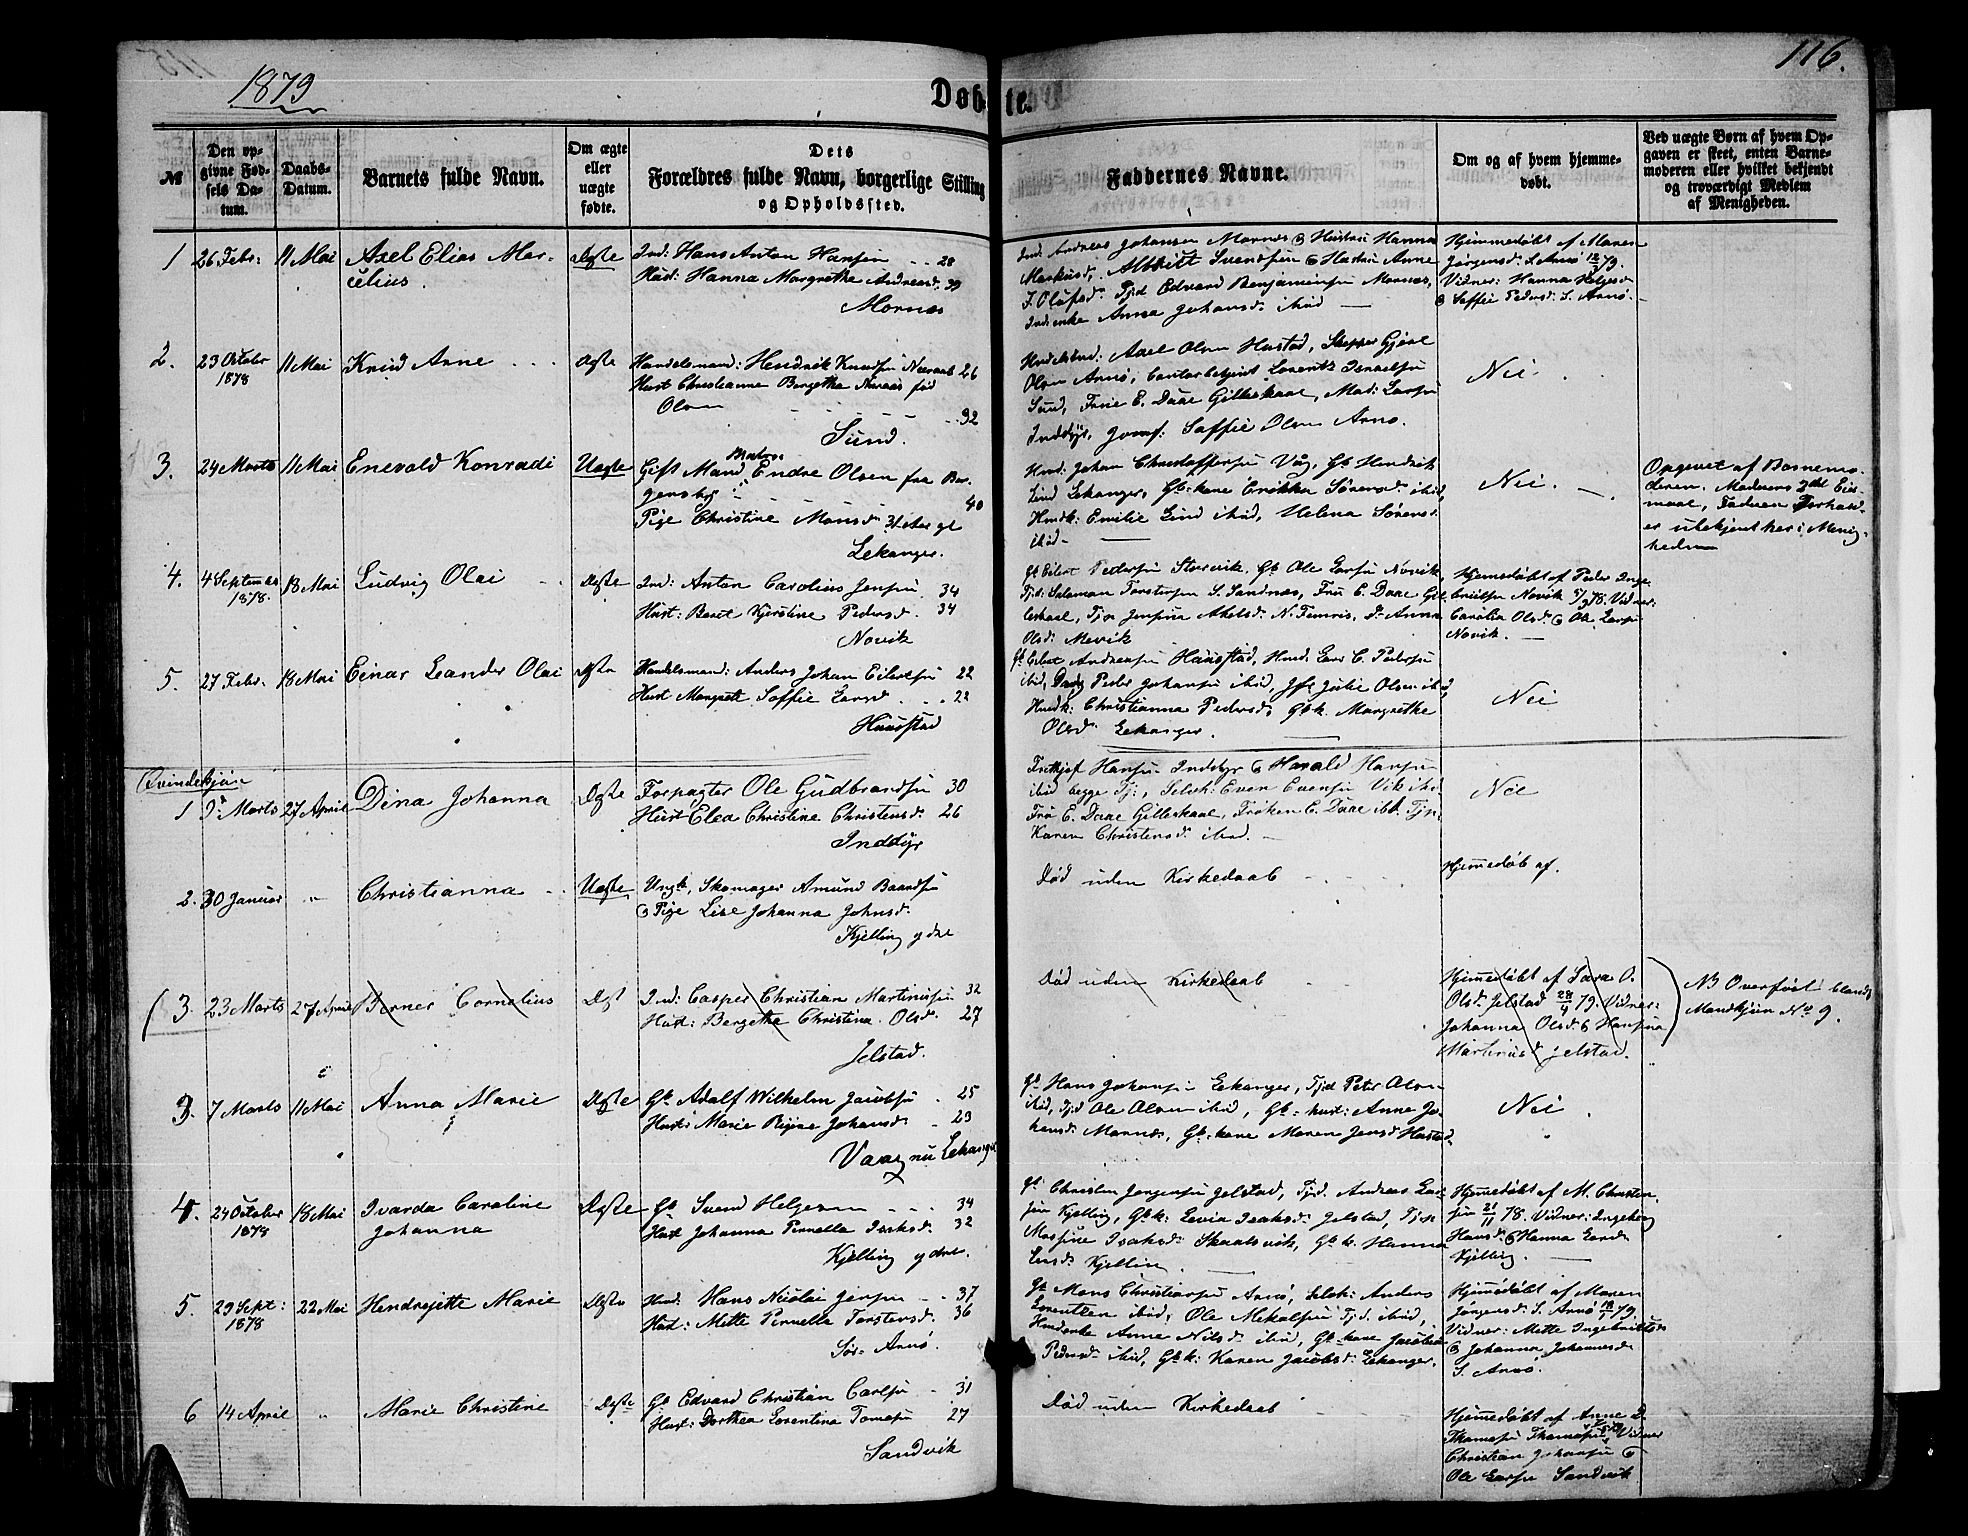 1879
Døbte.
116.
№
Den op-
givne Fød-
sels Da-
tum.
Daabs-
Datum.
Barnets fulde Navn.
Om ægte
eller
uægte
fødte.
Dets
Forældres fulde Navn, borgerlige Stilling
og Opholdssted.
Faddernes Navne.
Om og af hvem hjemme-
døbt.
Ved uægte Børn af hvem Op-
gaven er skeet, enten Barne-
moderen eller hvilket bekjendt
og troværdigt Medlem
af Menigheden.
1 26 Febr. 11 Mai Axel Elias Mar-
celius.
Ægte
Ind: Hans Anton Hansen 28
Hust: Hanna Margrethe Andreasd. 39
Mornæs
Ind: Andreas Johansen Mornæs & Hustru Hanna
Markusd. Albrikt Svendsen & Hustru Anne
J. Olufsd. Tjd Edvard Benjaminsen Mornæs,
Indenke Anna Johansd. ibid
Hjemmedøbt af Maren
Jørgensd. S. Arnø 12/3 79.
Vidner: Hanna Helgesd
& Saffie Pedersd. S. Arnø.
2. 23 October
1878
11 Mai Knud Arne
Ægte
Handelsmand: Hendrik Knudsen Næraas 26
Hust Christianne Bergethe Næraas fød
Olsen 32
Sund.
Handelsbud: Axel Olsen Hustad, Skipper Gjert
Olsen Arnø, Contorbetjent Lorentz Israelsen
Sund, Frue E. Daae Gilleskaal, Mad: Larsen
Inddyr, Jomf: Saffie Olsen Arnø.
Nei
3. 24 Marts 11 Mai Enevold Konradi
Uægte
Gift Mand Endre Olsen fra Ber-
gensby 40
Pige Christine Monsd. 31 Aar gl
Lekanger.
Hmd: Johan Christoffersen Våg, Gb Hendrik
Lind Lekanger, Gb:kone Erikka Sørensd ibid,
Hmdk: Emilie Lind ibid, Helena Sørensd.
ibid
Nei.
Opgivet af Barnemo-
deren. Moderens 2det Leier-
maal, Faderen Forhold
er ubekjent her i Menig-
heden
4. 4 September
1878.
18 Mai Ludvig Olai
Ægte
Ind: Anton Carolius Jensen 34
Hust: Beret Kjerstine Pedersd. 34
Novik
Gb Eilert Pedersen Storvik, Gb Ole Larsen Novik,
Tjd: Salamon Torstensen S. Sandnæs, Frue E. Daae Gil-
leskaal, Tjp Jensine Akelsd. N. Femris, D: Anna
Olsd. Mevik
Hjemmedøbt af Peder Inge-
brigtsen Novik 5/9 78. Vidner:
Carolia Olsd. & Ole Larsen
Novik.
5. 27 Febr. 18 Mai Einar Leander Olai
Ægte
Handelsmand: Anders Johan Eilertsen 22
Hust Margrete Saffie Larsd 22
Haustad
Gb Eilert Andreasen Haustad, Hmd. Lars C. Pedersen
ibid, Peder Johansen ibid, Jfr Julie Olsen ibid,
Hmdk: Christianna Pedersd, Gbk. Margrethe
Olsd. Lekanger.
Nei
Qvindekjøn
1 9 Marts 27 April Dina Johanna
Ægte
Forpagter Ole Gudbrandsen 30
Hust Elea Christine Christensd. 26
Inddyr
Fridtjof Hansen Inddyr & Harald Hansen
ibid begge Tj:, Selvk: Even Evensen Vik ibid
Fru E. Daae Gilleskaal, Frøken C. Daae ibd. Tjp.
Karen Christensd. ibid.
Nei
2. 30 Januar " Christianna
Uægte
Ungk, Skomager Amund Baardsen
& Pige Lise Johanna Johnsd.
Kjelling ydre
Død uden Kirkedaab
Hjemmedøb af.
(3. 23 Marts 27 April Berner Cornelius
Ægt
Ind: Casper Christian Martinusen 32
Hust: Bergethe Christina Olsd. 27
Jelstad.
Død uden Kirkedaab
Hjemmedøbt af Sara O.
Olsd. Jelstad 28/4 79. Vidner:
Johanna Olsd. & Hansina
Martinusd Jelstad.
NB Overført blandt
Mandkjøn No 9.
3. 7 Marts 11 Mai Anna Marie
Ægte
Gb. Adolf Wilhelm Jacobsen 25
Hust: Marie Regine Johansd. 23
Vaag nu Lekanger
Gb Hans Johansen Lekanger, Tjd Peter Olsen
ibid, Tjd Ole Olsen ibid, Gb: hust: Anne Jo-
hansd. Mornæs, Gb:kone Maren Jensd. Hustad.
Nei.
4. 24 October
1878
18 Mai Ivarda Caroline
Johanna
Ægte
Gb Svend Helgesen 34
Hust Johanna Pernella Isaksd. 32
Kjelling ydre.
Gb Christen Jørgensen Jelstad, Tjd. Andreas Lar-
sen Kjelling, Gbk: Lovia Isaksd. Jelstad, Tjp
Massine Isaksd. Skaalsvik, Gbk. Hanna
Larsd: Kjelling.
Hjemmedøbt af M. Christen-
sen 21/11 78. Vidner: Ingeborg
Hansd. & Hanna Larsd.
Kjelling.
5. 29 Sept:
1878
22 Mai Hendrijette Marie
Ægte
Hmd. Hans Nicolai Jensen 37
Hust: Mette Pernella Torstensd. 36
Sør-Arnø.
Gb Mons Christiansen Arnø, Selvk: Anders
Lorentzen ibid, Ole Mikalsen Tjd. ibid,
Hmdenke Anne Nilsd. ibid, Gb:kone Jacobia
Pedersd. ibid, Gbk: Karen Jacobsd: Lekanger.
Hjemmedøbt af Maren
Jørgensd. S. Arnø 18/1 79.
Vidner: Mette Ingebrittsd.
& Johanna Johannesd.
S. Arnø.
6 14 April " Marie Christine
Ægte
Gb Edvard Christian Carlsen 31
Hust: Dorthea Lorentina Tomasen 27
Sandvik
Død uden Kirkedaab
Hjemmedøbt af Anne D.
Thomasen Vidner
Christian Johansen &
Ole Larsen Sandvik